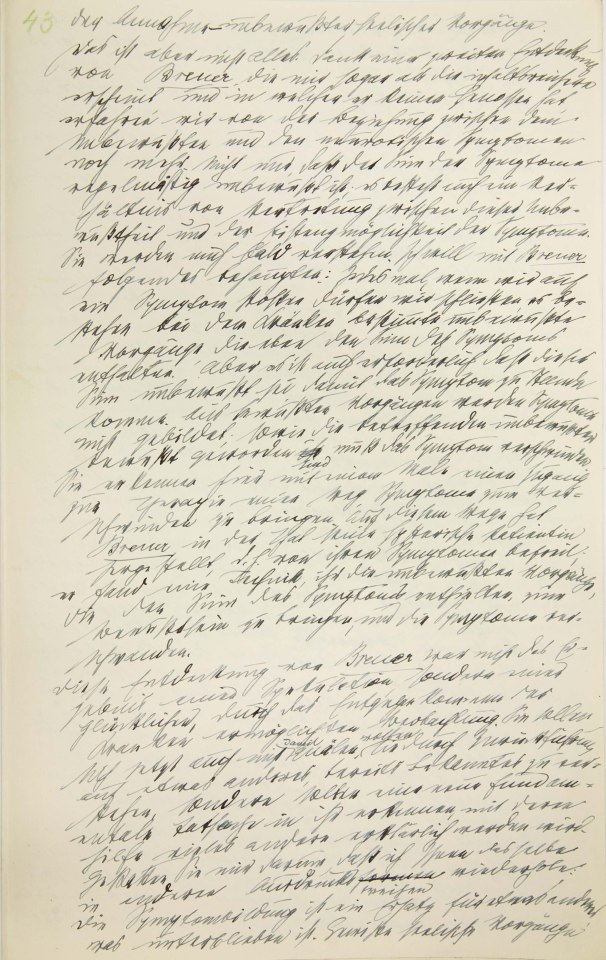 43
der Annahme unbewußter seelischer Vorgänge.
Das ist aber nicht alles. Dank einer zweiten Entdeckung
von Breuer die mir sogar als die inhaltsreichere
erscheint und in welcher er keinen Genossen hat
erfahren wir von der Beziehung zwischen dem
Unbewußten und den neurotischen Symptomen
noch mehr. Nicht nur, daß der Sinn der Symptome
regelmäßig unbewußt ist; es besteht auch ein Ver-
hältnis von Vertretung zwischen dieser Unbe-
wußtheit und der Existenzmöglichkeit der Symptome.
Sie werden mich bald verstehen. Ich will mit Breuer
folgendes behaupten: Jedesmal wenn wir auf
ein Symptom stoßen dürfen wir schließen es be-
stehen bei dem Kranken bestimmte unbewußte
Vorgänge die eben den Sinn des Symptoms
enthalten. Aber es ist auch erforderlich daß dieser
Sinn unbewußt sei damit das Symptom zu Stande
komme. Aus bewußten Vorgängen werden Symptome
nicht gebildet. Sowie die betreffenden unbewußten
bewußt geworden sind muß das Symptom verschwinden
Sie erkennen hier mit einem Male einen Zugang
zur Therapie einen Weg Symptome zum Ver-
schwinden zu bringen. Auf diesem Wege hat
Breuer in der That seine hysterische Patientin
hergestellt d. h. von ihren Symptomen befreit;
er fand eine Technik, ihr die unbewußten Vorgänge,
die den Sinn des Symptoms enthielten, zum
Bewußtsein zu bringen, und die Symptome ver-
schwanden.
Diese Entdeckung von Breuer war nicht das Er-
gebnis einer Spekulation sondern einer
glücklichen, durch das Entgegenkommen des
Kranken ermöglichten Beobachtung. Sie sollen
sich jetzt auch nicht damit quälen wollen, sie durch Zurückführung
auf etwas anderes, bereits Bekanntes zu ver-
stehen, sondern sollen eine neue fundam-
entale Tatsache in ihr erkennen mit deren
Hilfe vieles andere erklärlich werden wird.
Gestatten Sie mir darum, daß ich Ihnen dasselbe
in anderen Ausdrucksweisen wiederhole.
Die Symptombildung ist ein Ersatz für etwas anderes
was unterblieben ist. Gewisse seelische Vorgänge